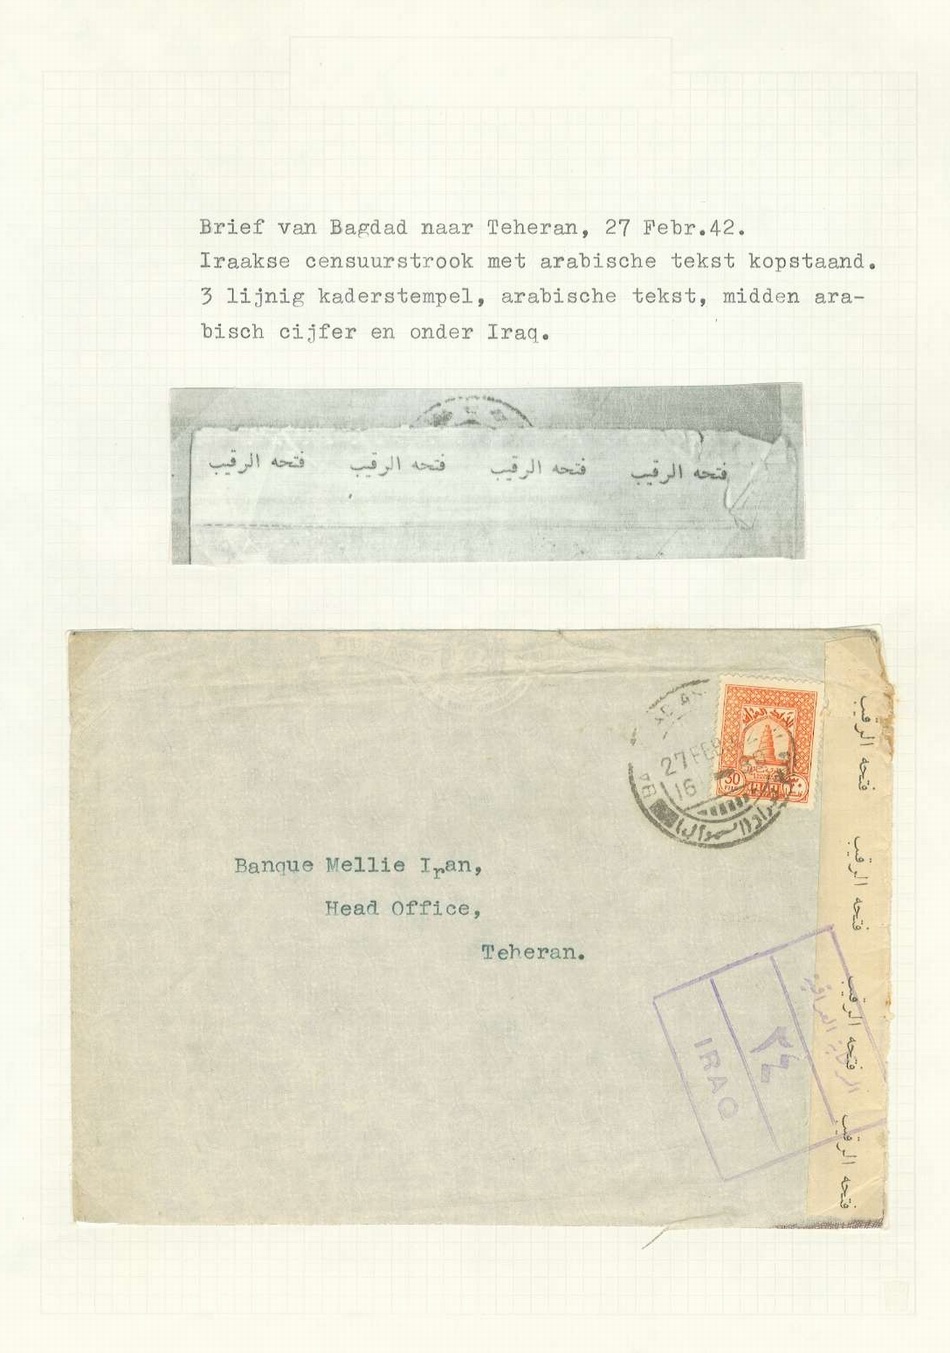 Brief van Bagdad naar Teheran, 27 Febr.42.
Iraakse censuurstrook met arabische tekst kopstaand.
3 lijnig kaderstempel, arabische tekst, midden ara-
bisch cijfer en onder Iraq.
فتحه الرقيب فتحه الرقيب فتحه الرقيب فتحه الرقيب
27 FEB
16
30
Banque Mellie Iran,
Head Office,
Teheran.
فتحه الرقيب
فتحه الرقيب
فتحه الرقيب
فتحه الرقيب
IRAQ